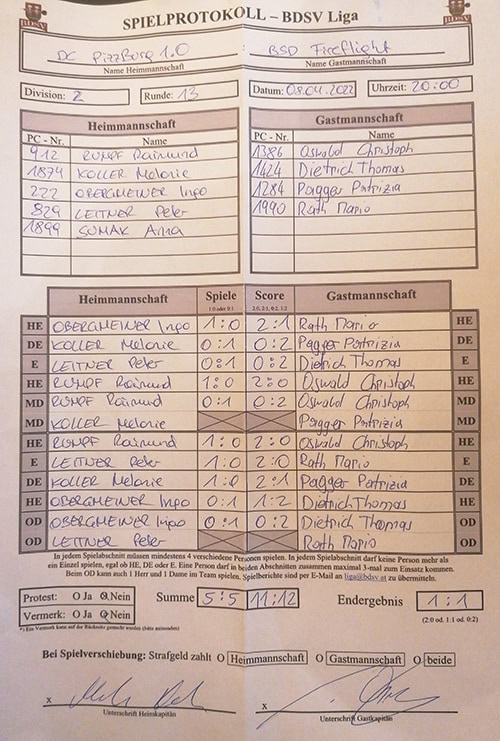 BDSV SPIELPROTOKOLL – BDSV Liga BDSV
DC PizzBurg 1.0 : BSD Fireflight
Name Heimmannschaft Name Gastmannschaft
Division: 2 Runde: 13 Datum: 08.04.2022 Uhrzeit: 20:00
Heimmannschaft Gastmannschaft
PC - Nr. Name PC - Nr. Name
912 RUMPF Raimund 1386 Oswald Christoph
1874 KOLLER Melanie 1424 Dietrich Thomas
222 OBERGMEINER Ingo 1284 Pagger Patrizia
829 LEITNER Peter 1990 Rath Mario
1899 SUMAK Anna
Heimmannschaft Spiele Score Gastmannschaft
1:0 oder 0:1 2:0, 2:1, 0:2, 1:2
HE OBERGMEINER Ingo 1:0 2:1 Rath Mario HE
DE KOLLER Melanie 0:1 0:2 Pagger Patrizia DE
E LEITNER Peter 0:1 0:2 Dietrich Thomas E
HE RUMPF Raimund 1:0 2:0 Oswald Christoph HE
MD RUMPF Raimund 0:1 0:2 Oswald Christoph MD
MD KOLLER Melanie Pagger Patrizia MD
HE RUMPF Raimund 1:0 2:0 Oswald Christoph HE
E LEITNER Peter 1:0 2:0 Rath Mario E
DE KOLLER Melanie 1:0 2:1 Pagger Patrizia DE
HE OBERGMEINER Ingo 0:1 1:2 Dietrich Thomas HE
OD OBERGMEINER Ingo 0:1 0:2 Dietrich Thomas OD
OD LEITNER Peter Rath Mario OD
In jedem Spielabschnitt müssen mindestens 4 verschiedene Personen spielen. In jedem Spielabschnitt darf keine Person mehr als
ein Einzel spielen, egal ob HE, DE oder E. Eine Person darf in beiden Abschnitten zusammen maximal 3-mal zum Einsatz kommen.
Beim OD kann auch 1 Herr und 1 Dame im Team spielen. Spielberichte sind per E-Mail an liga@bdsv.at zu übermitteln.
Protest: O Ja O Nein Summe 5:5 11:12 Endergebnis 1:1
Vermerk: O Ja O Nein (2:0 od. 1:1 od. 0:2)
*) Ein Vermerk kann auf der Rückseite gemacht werden (bitte ankreuzen)
Bei Spielverschiebung: Strafgeld zahlt O Heimmannschaft O Gastmannschaft O beide
x x
Unterschrift Heimkapitän Unterschrift Gastkapitän